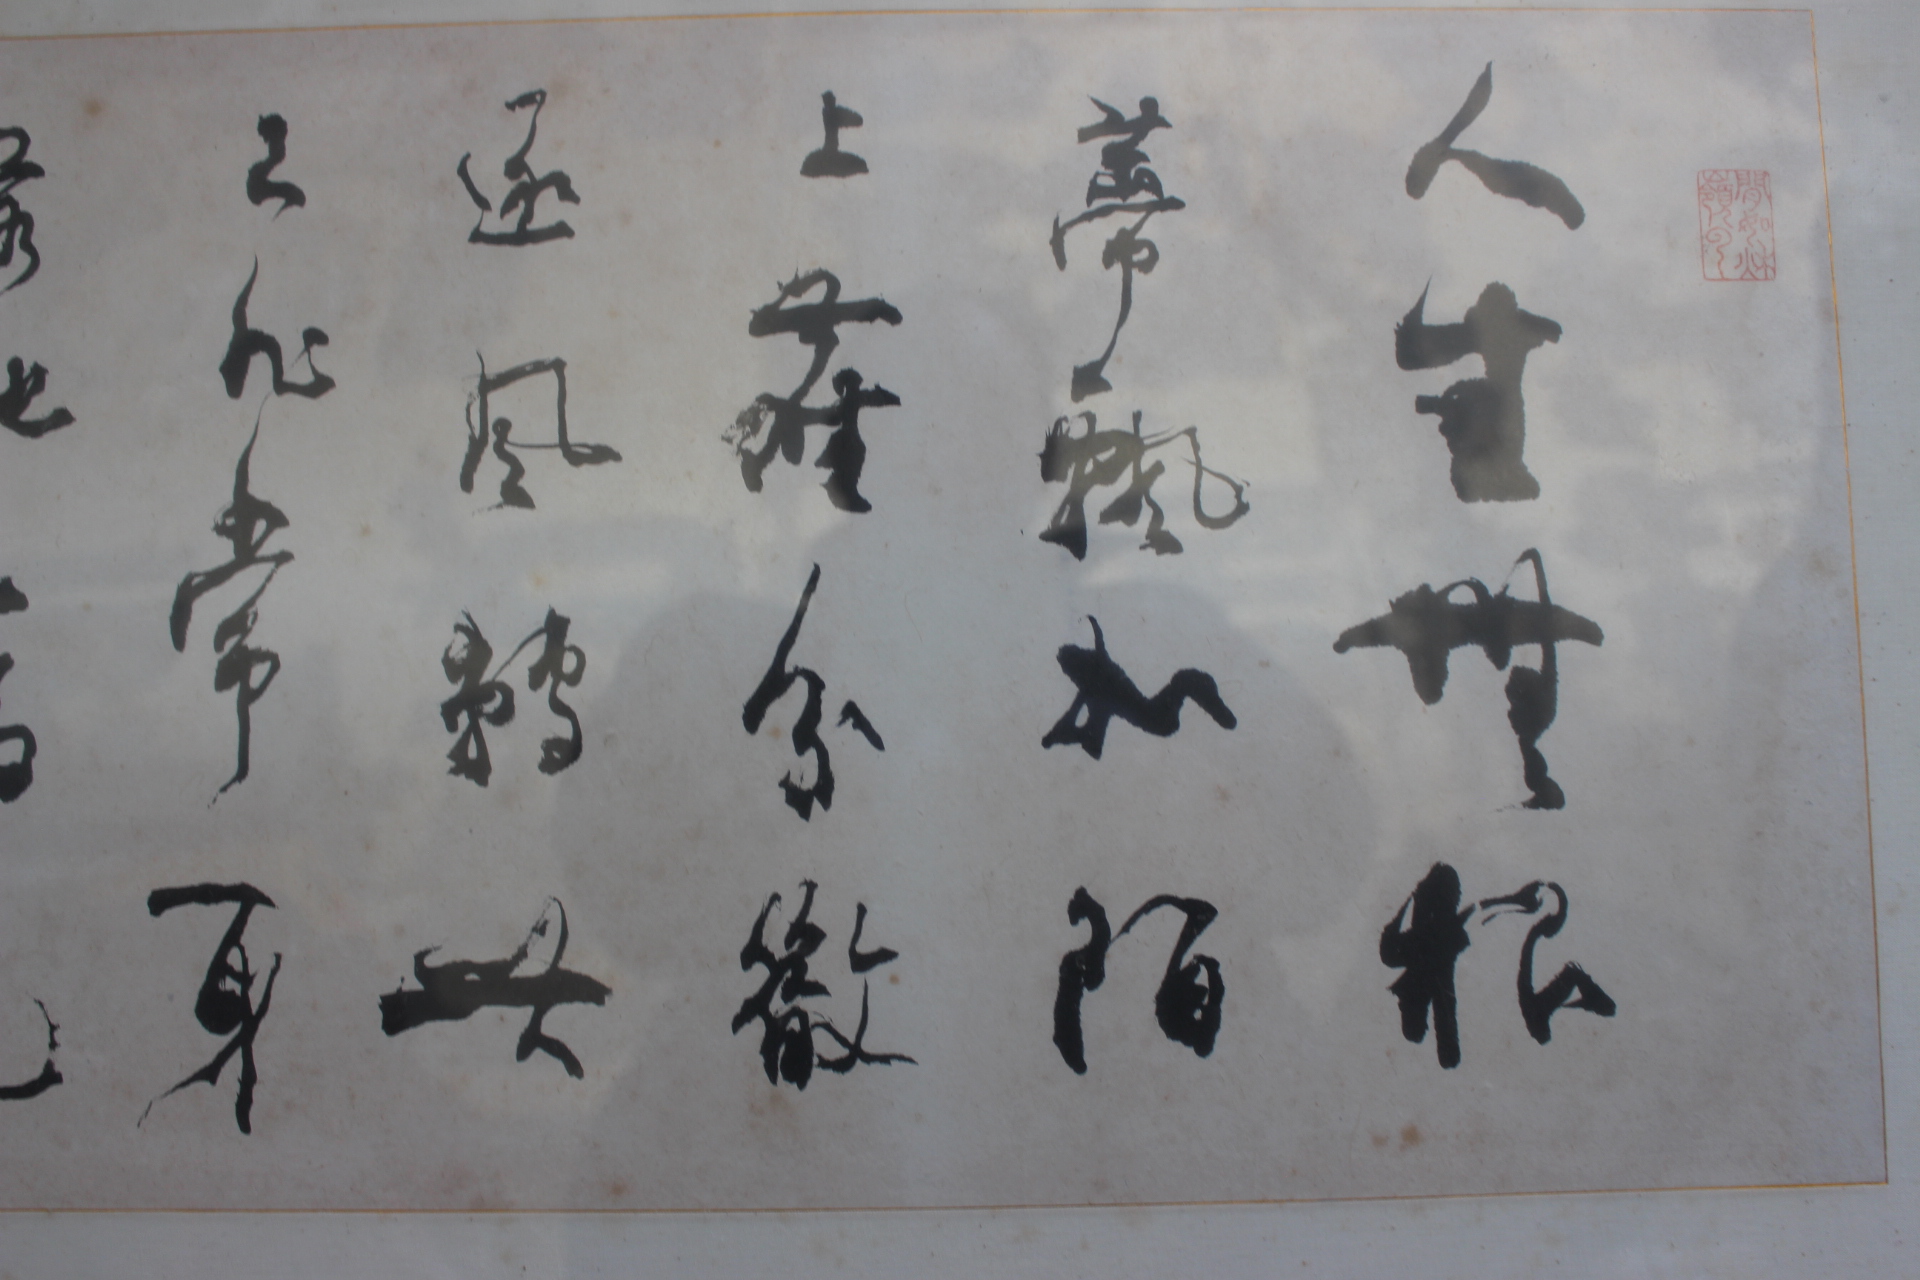 人生無根
蔕飄如陌
上塵分散
逐風轉此
已非常身
落地